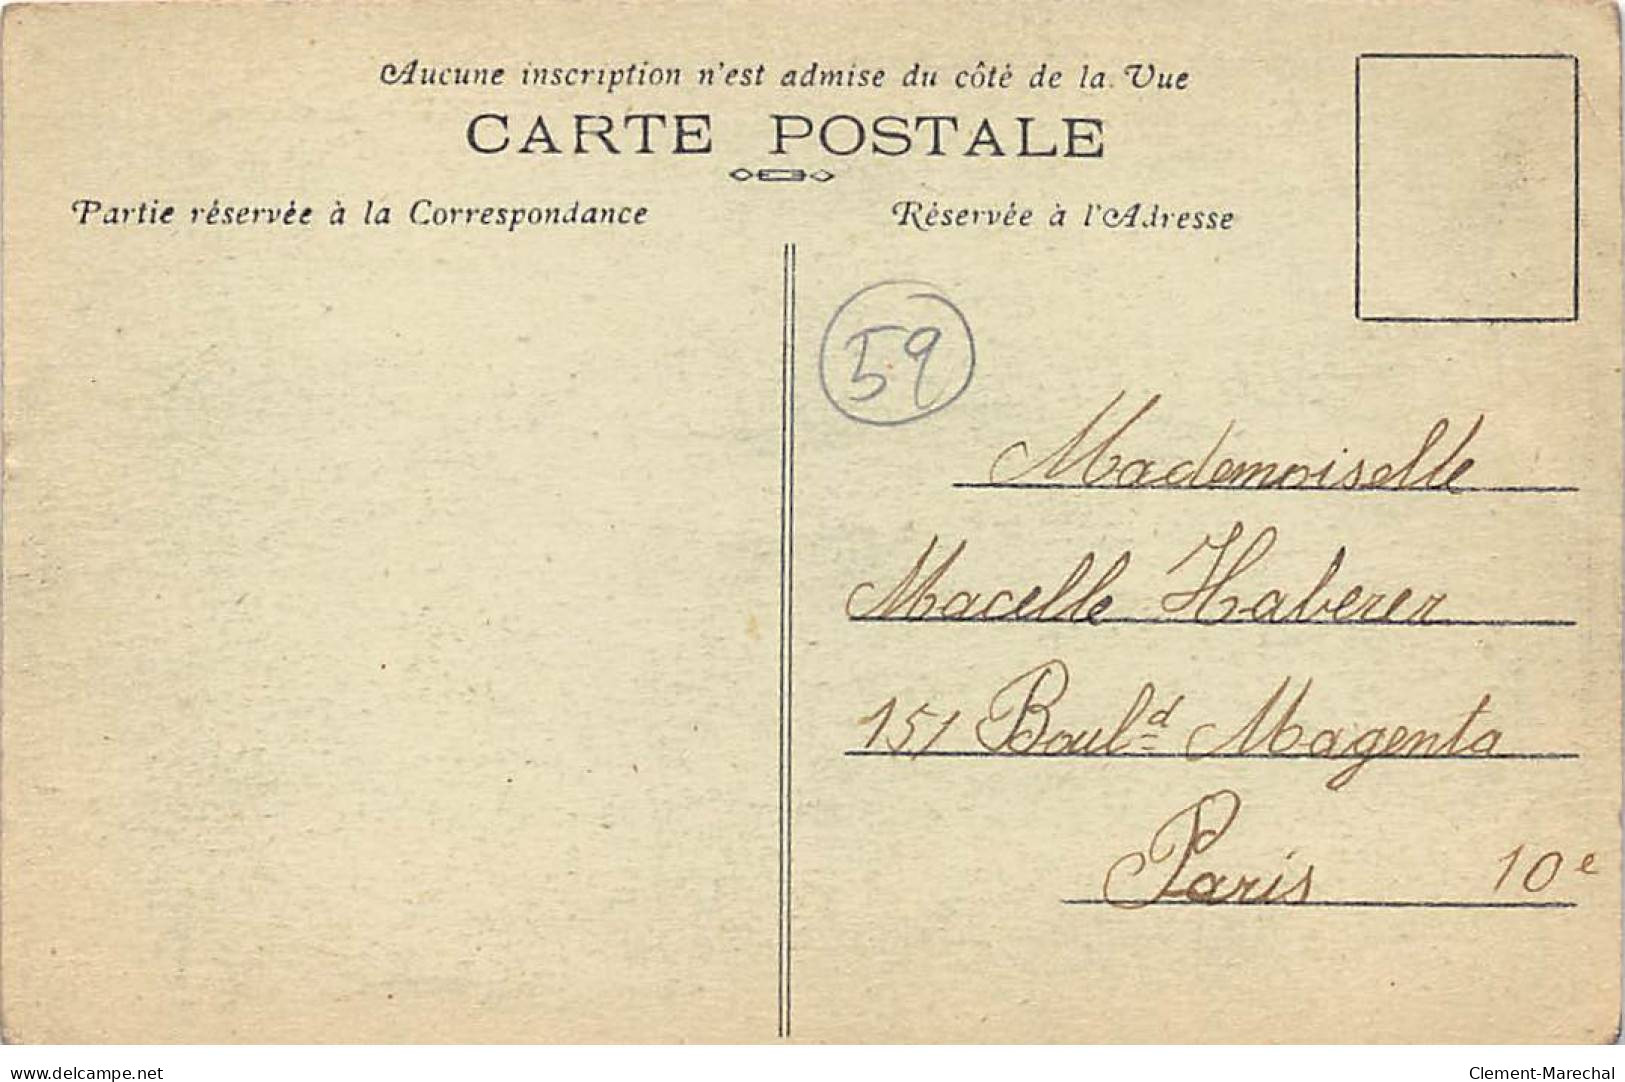 Aucune inscription n'est admise du côté de la Vue
CARTE POSTALE
Partie réservée à la Correspondance
Réservée à l'Adresse
59
Mademoiselle
Macelle Haberer
151 Boulᵈ Magenta
Paris 10ᵉ
www.delcampe.net
Clement-Marechal